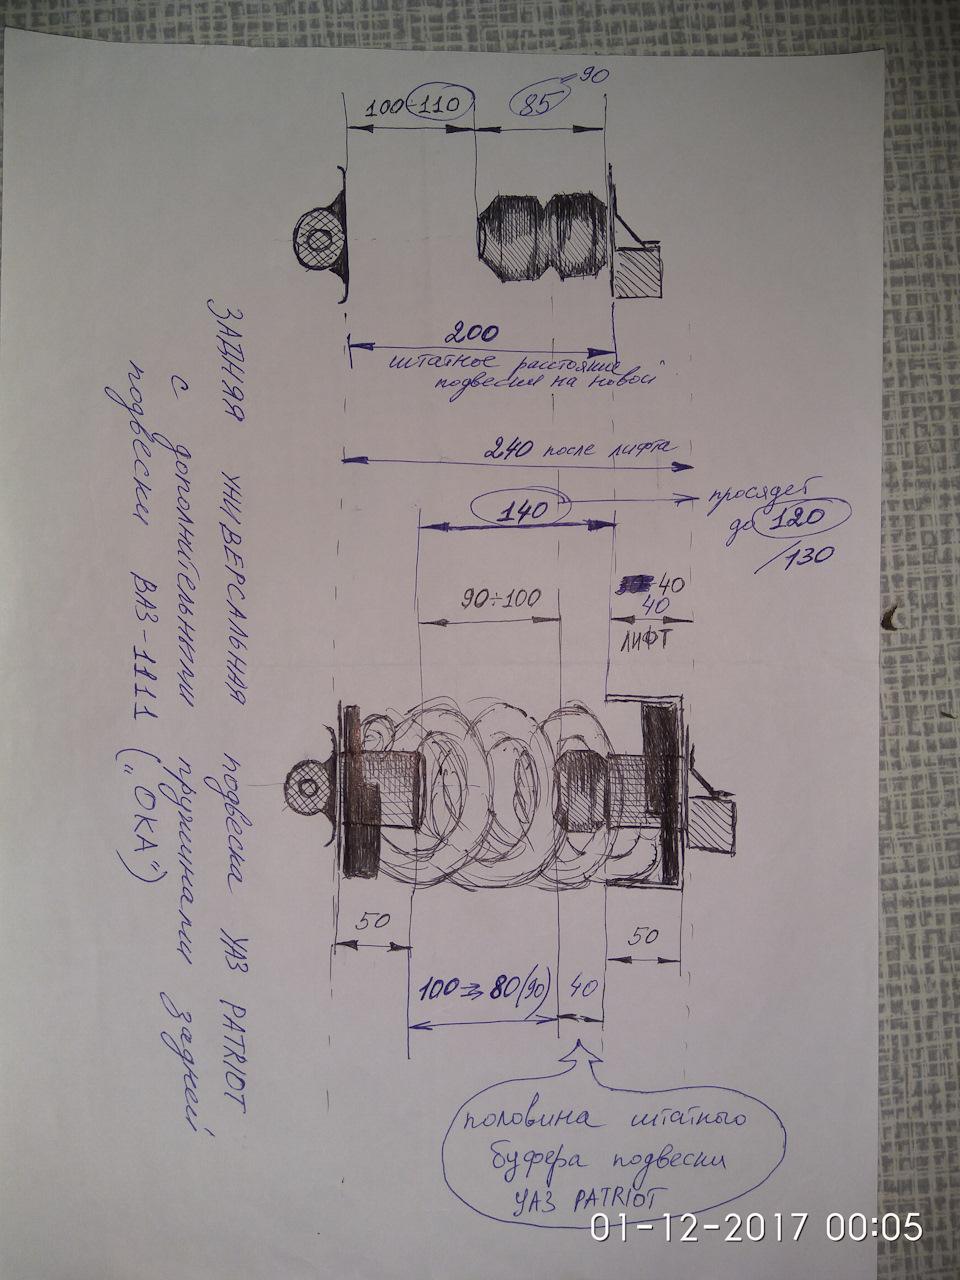 100÷110
85
90
200
штатное расстояние
подвески на новой
240 после лифта
140
просядет
до 120
/130
90÷100
40
40
ЛИФТ
50
50
100 → 80(90)
40
половина штатного
буфера подвески
УАЗ PATRIOT
ЗАДНЯЯ УНИВЕРСАЛЬНАЯ подвеска УАЗ PATRIOT
с дополнительными пружинами задней
подвески ВАЗ-1111 („ОКА")
01-12-2017 00:05